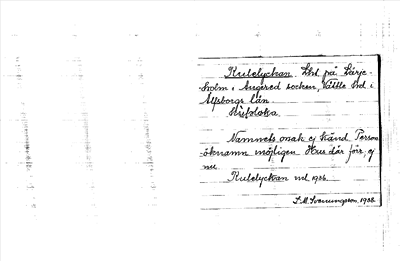 Kulelyckan. Lht. på Lärje-
-holm i Angered socken, Vättle hd i
Älfsborgs län

Namnets orsak ej känd. Person
-öknamn möjligen. Hus där förr, ej
nu.
Kulelyckan url 1936.
S.M. Svenungsson, 1938.